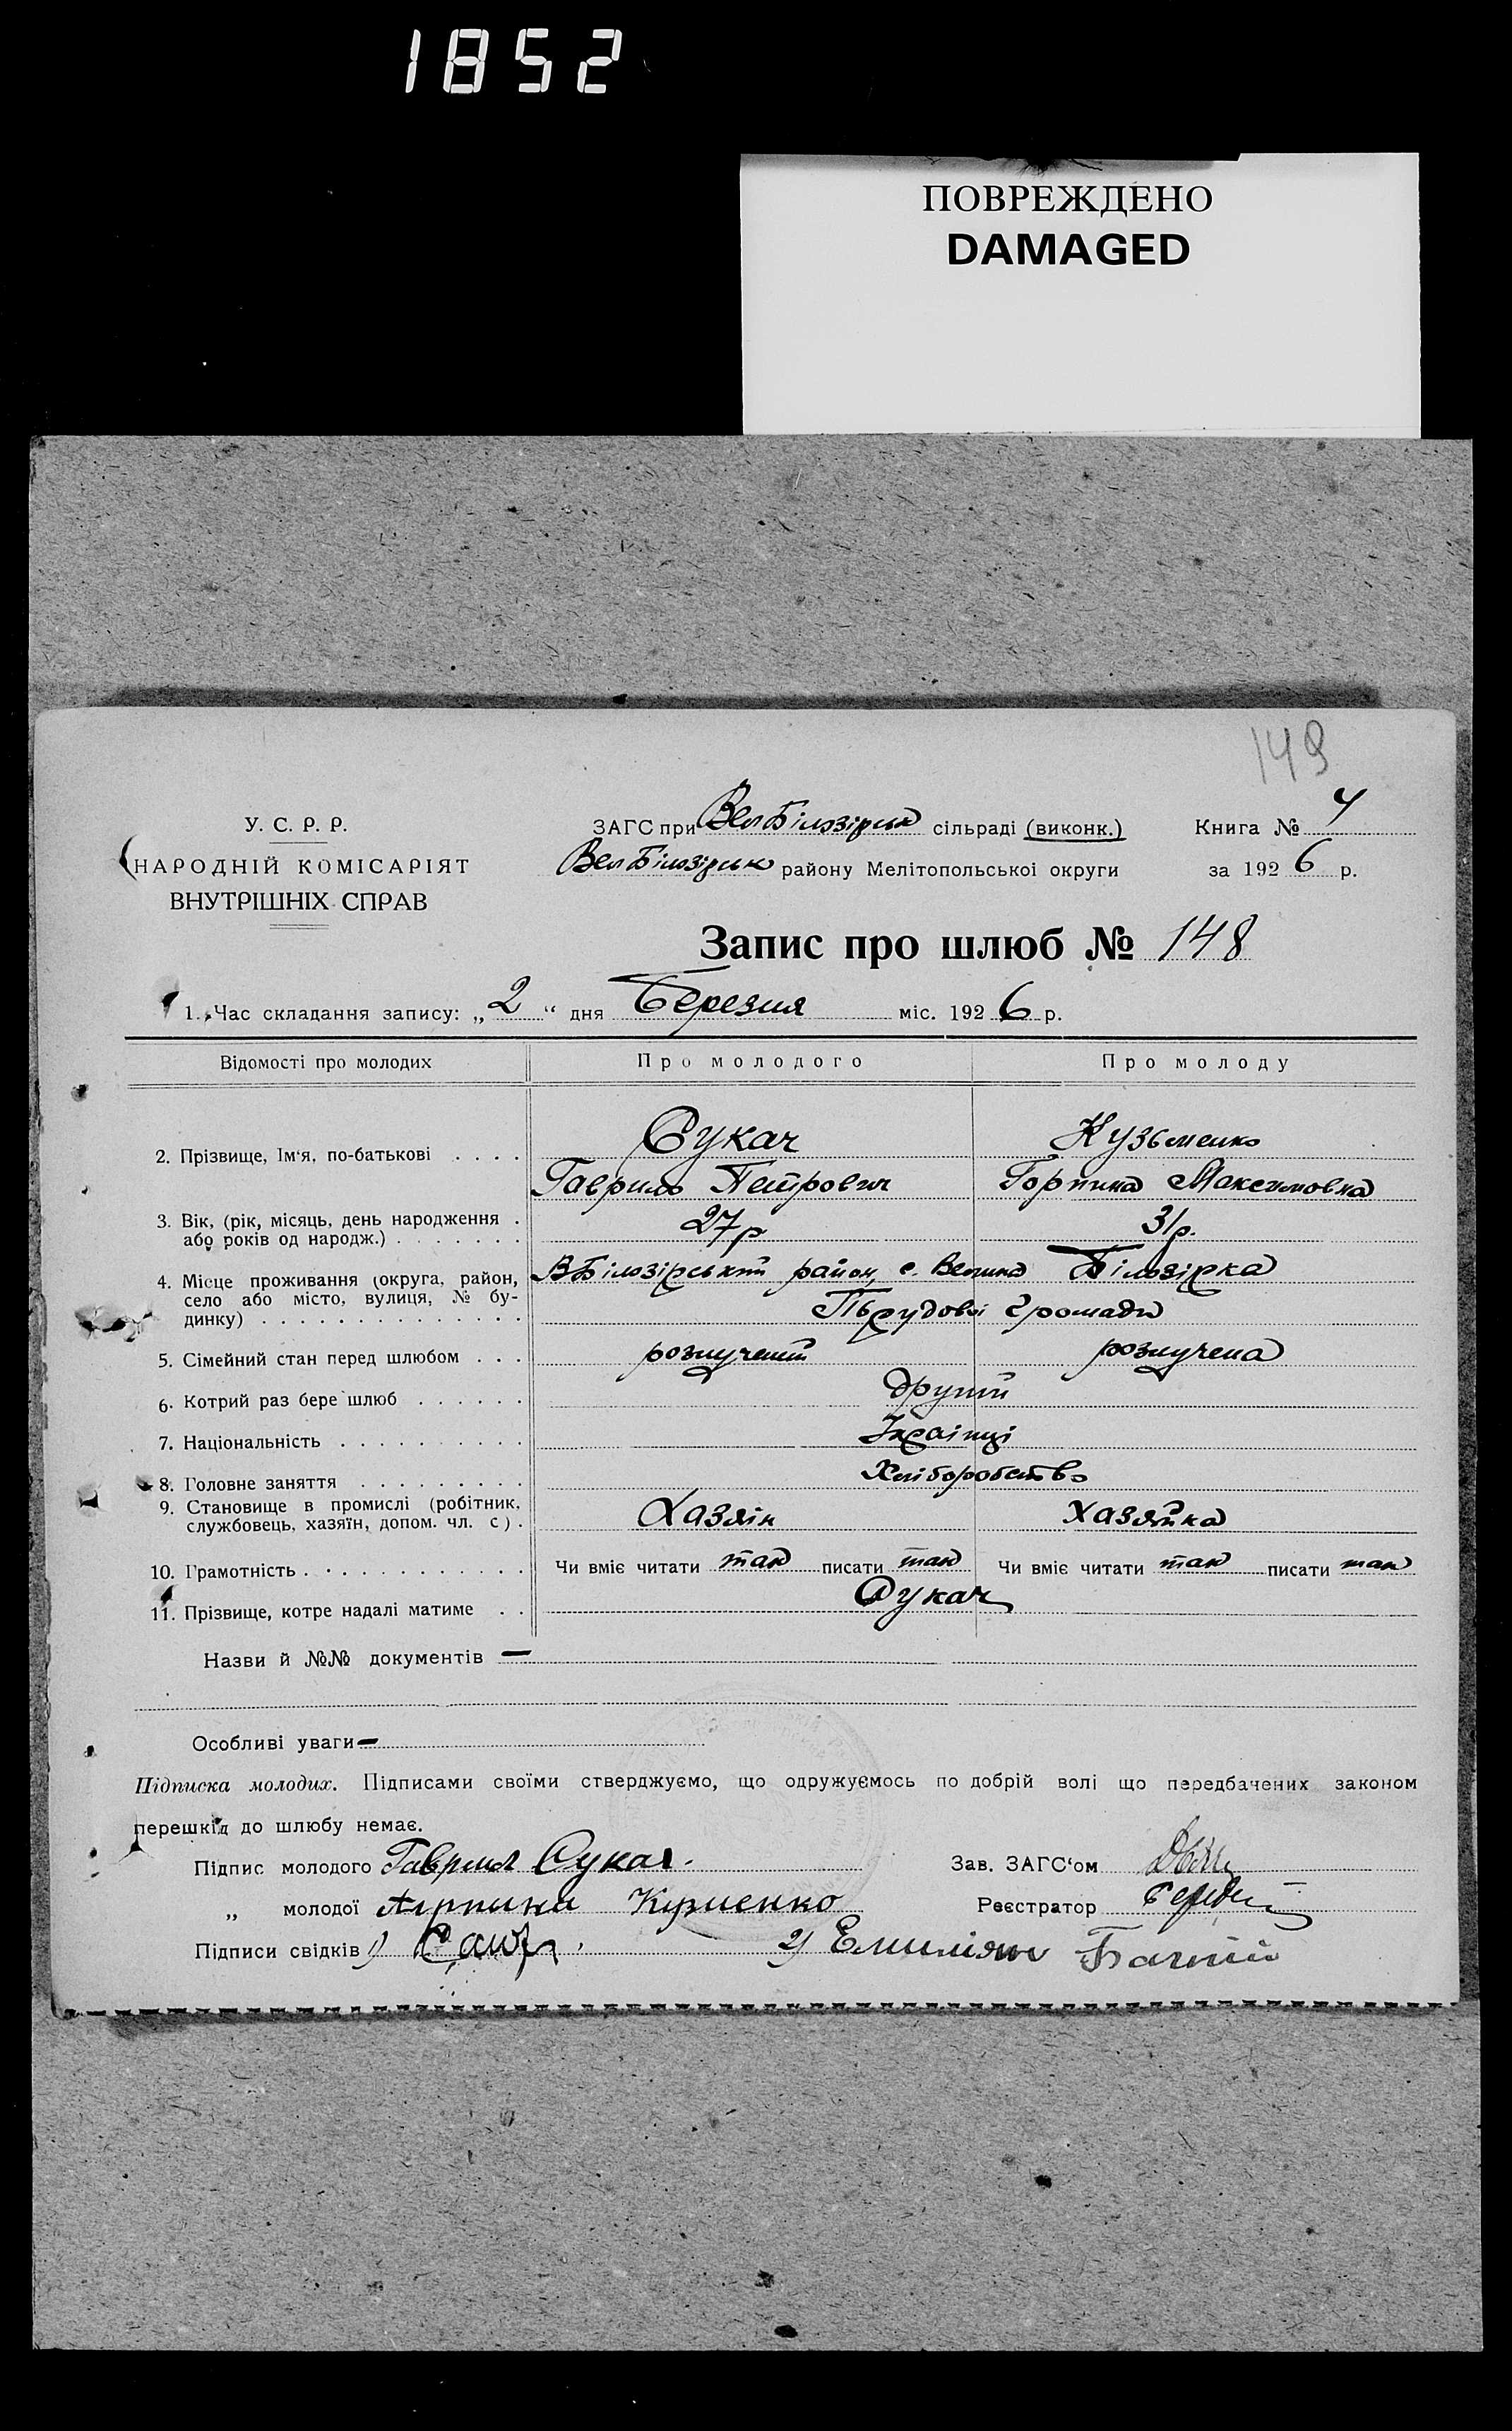 1852
ПОВРЕЖДЕНО
DAMAGED
149
У. С. Р. Р.
НАРОДНІЙ КОМІСАРІЯТ
ВНУТРІШНІХ СПРАВ
ЗАГС при ВелБілозірськ сільраді (виконк.)
Книга №
ВелБілозірськ району Мелітопольської округи
за 1926 р.
Запис про шлюб № 148
1. Час складання запису: „2“ дня Березня міс. 1926 р.
Відомості про молодих Про молодого Про молоду
2. Прізвище, Ім‘я, по-батькові . . . . Сукач Кузьменко
Гаврило Петрович Горпина Максимовна
3. Вік, (рік, місяць, день народження . 27р 31р.
або років од народж.) . . . . . . .
4. Місце проживання (округа, район, ВБілозірський район, с. Велика Білозірка
село або місто, вулиця, № бу-
динку) . . . . . . . . . . . . . . громади
5. Сімейний стан перед шлюбом . . . розлучений розлучена
6. Котрий раз бере шлюб . . . . . . другий
7. Національність . . . . . . . . . . Українці
8. Головне заняття . . . . . . . . . Хліборобство
9. Становище в промислі (робітник, Хазяін хазяйка
службовець, хазяїн, допом. чл. с) .
10. Грамотність . . . . . . . . . . . . Чи вміє читати так писати так Чи вміє читати так писати так
11. Прізвище, котре надалі матиме . . Сукач
Назви й №№ документів —
Особливі уваги —
Підписка молодих. Підписами своїми стверджуємо, що одружуємось по добрій волі що передбачених законом
перешкід до шлюбу немає.
Підпис молодого Гаврил Сукач.
Зав. ЗАГС‘ом
„ молодої Кузменко
Реєстратор
Підписи свідків 1)
2) Емиліян